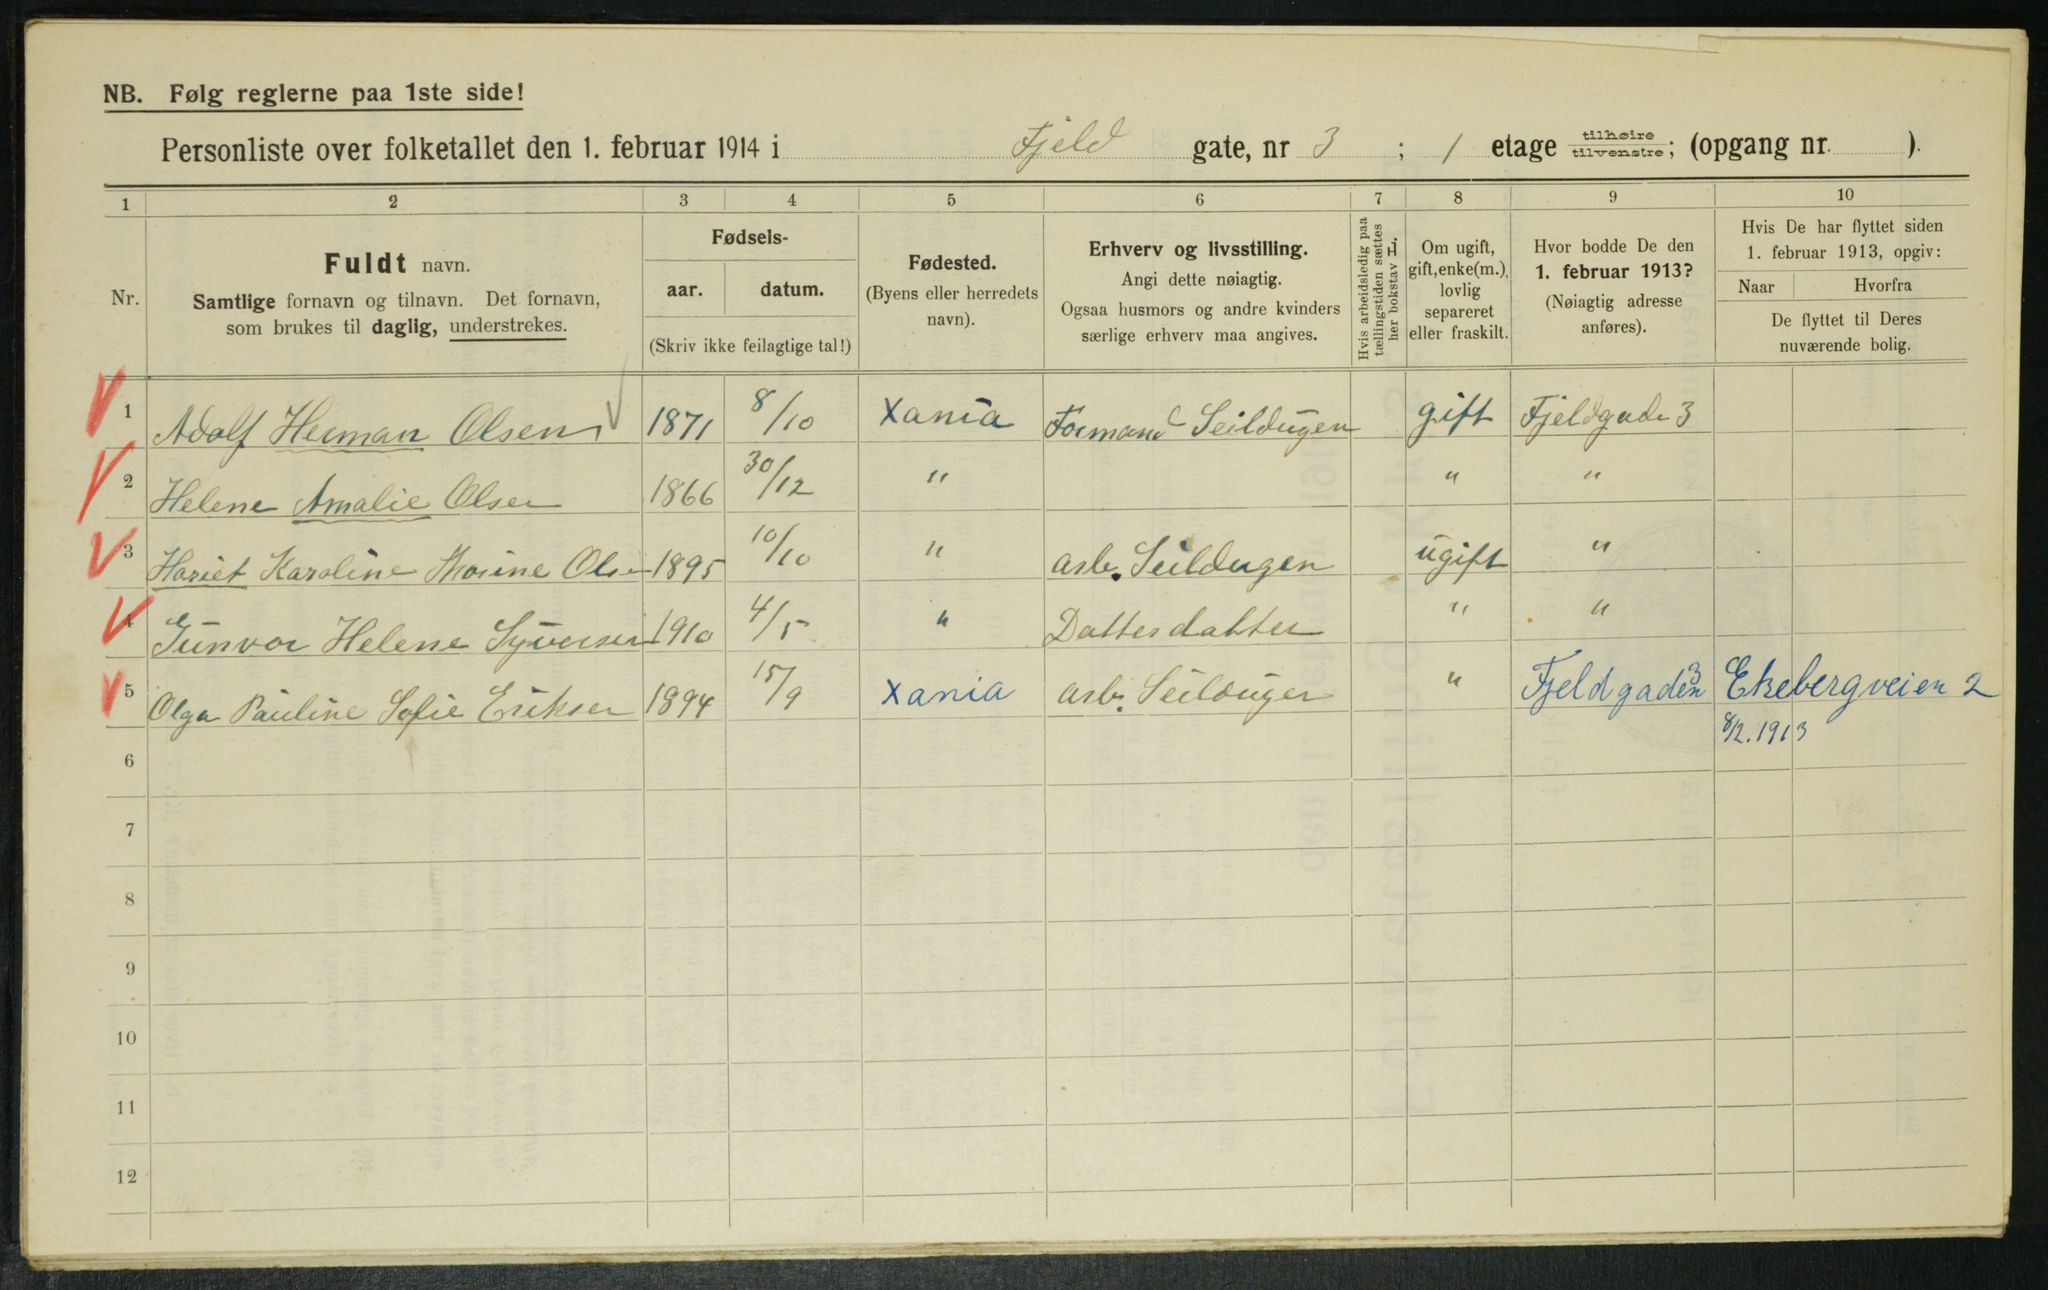 NB. Følg reglerne paa 1ste side!
Personliste over folketallet den 1. februar 1914 i Fjeld gate, nr 3 ; 1 etage tilhøire/tilvenstre; (opgang nr. ).
1 2 3 4 5 6 7 8 9 10
Nr.
Fuldt navn.
Samtlige fornavn og tilnavn. Det fornavn,
som brukes til daglig, understrekes.
Fødsels-
aar. datum.
(Skriv ikke feilagtige tal!)
Fødested.
(Byens eller herredets
navn).
Erhverv og livsstilling.
Angi dette nøiagtig.
Ogsaa husmors og andre kvinders
særlige erhverv maa angives.
Hvis arbeidsledig paa
tællingstiden sættes
her bokstav L.
Om ugift,
gift, enke(m.),
lovlig
separeret
eller fraskilt.
Hvor bodde De den
1. februar 1913?
(Nøiagtig adresse
anføres).
Hvis De har flyttet siden
1. februar 1913, opgiv:
Naar Hvorfra
De flyttet til Deres
nuværende bolig.
1 Adolf Herman Olsen 1871 8/10 Xania Formand Seildugen gift Fjeldgade 3
2 Helene Amalie Olsen 1866 30/12 " " "
3 Hariet Karoline Thorine Olsen 1895 10/10 " arb. Seildugen ugift "
4 Gunvor Helene Syversen 1910 4/5 " Datterdatter " "
5 Olga Pauline Sofie Eriksen 1894 15/9 Xania arb. Seildugen " Fjeldgaden 3 Ekebergveien 2
8/2. 1913
6
7
8
9
10
11
12